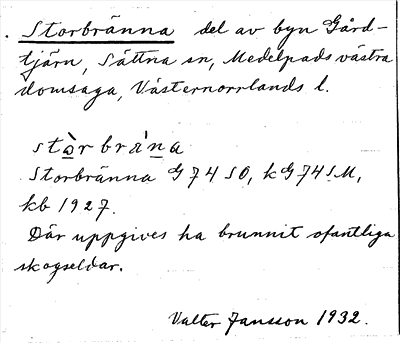 Storbränna del av byn Gård-
tjärn, Sättna sn, Medelpads västra
domsaga, Västernorrlands l.
stòrbrä̀na
Storbränna G 74 SO, kG 74 SM,
kb 1927.
Där uppgives ha brunnit ofantliga
skogseldar.
Valter Jansson 1932.